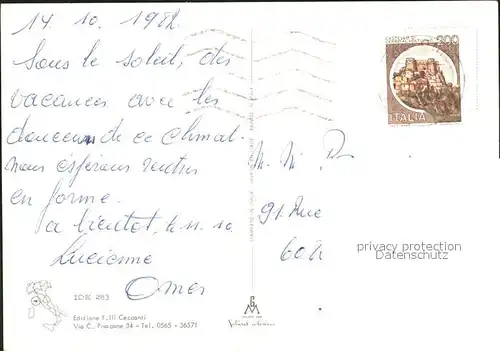 14. 10. 1982
Sous le soleil, des
vacances avec les
douceurs de ce climat.
nous espérons rentrer
en forme.
a bientot, le
Lucienne
Omer
M. M
91 Rue
60
300
ITALIA
privacy protection
DANIKEM
IDK 263
Edizione F.lli Cecconti
Via C. Pisacane 34 - Tel. 0565 - 36571